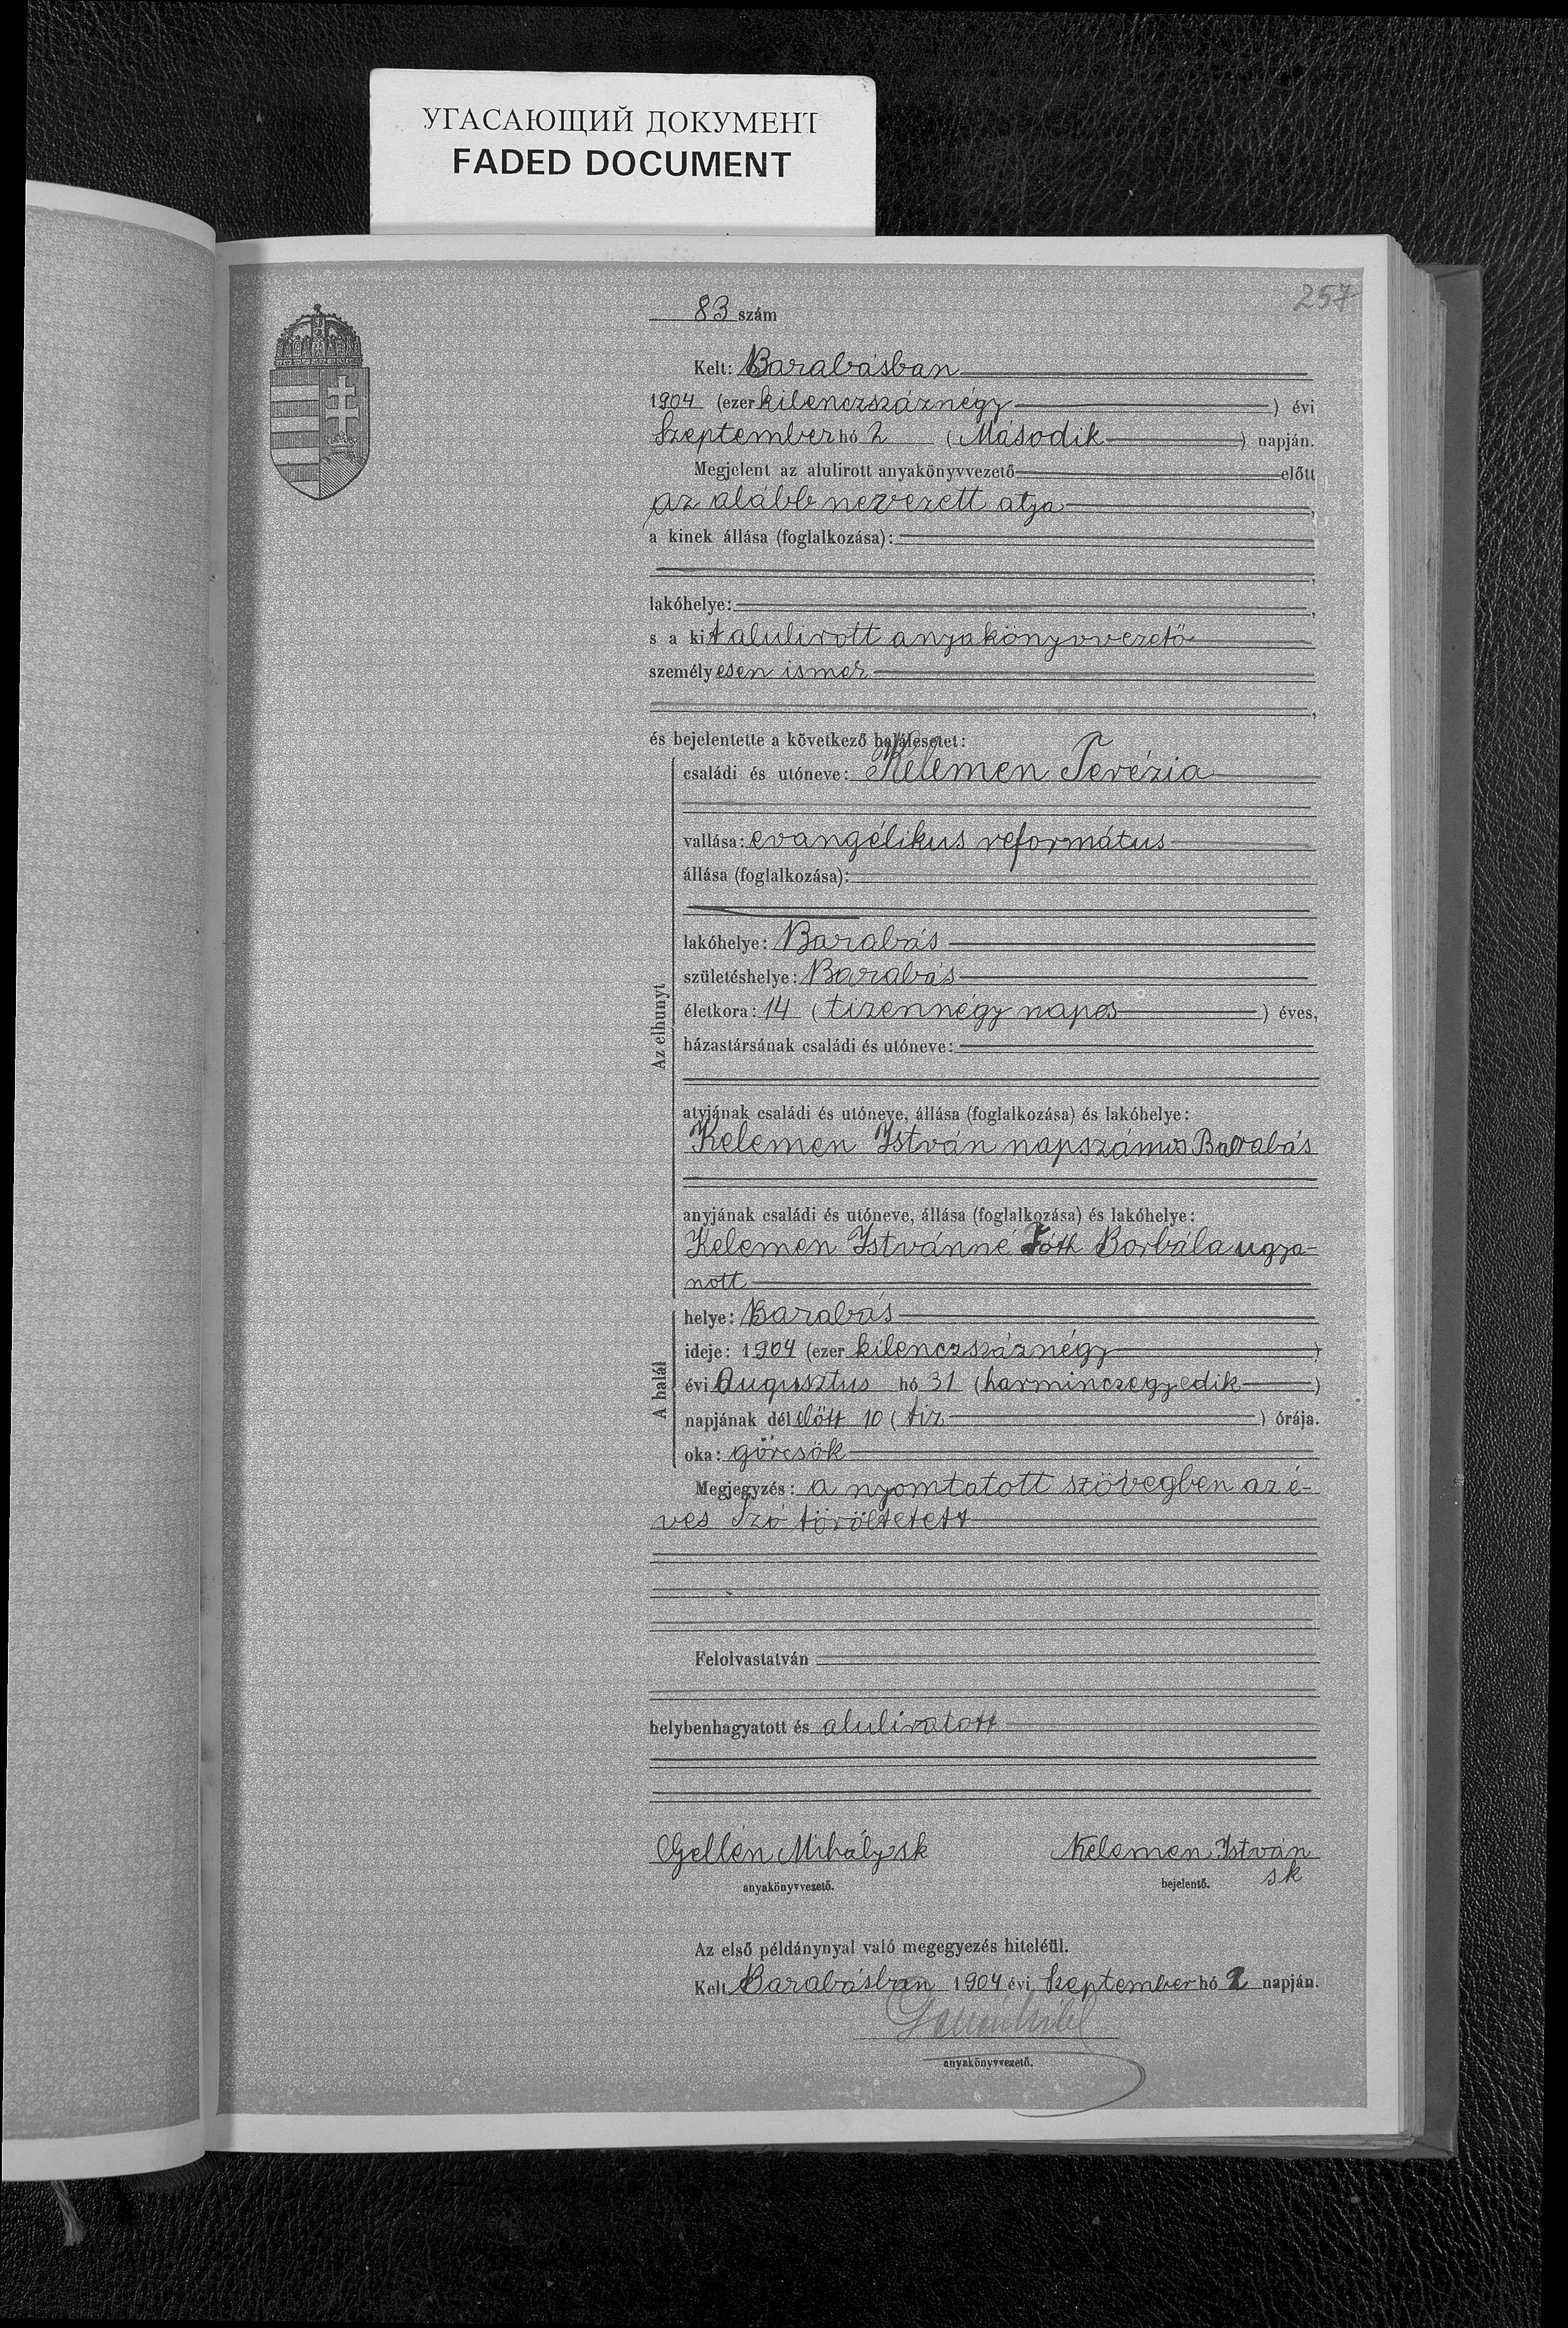 УГАСАЮЩИЙ ДОКУМЕНТ
FADED DOCUMENT
257
83 szám
Kelt: Barabásban
1904 (ezer kilenczszáznégy) évi
Szeptember hó 2 (Második) napján.
Megjelent az alulirott anyakönyvvezető előtt
az alább nevezett atja,
a kinek állása (foglalkozása):
lakóhelye:
s a kit alulirott anyakönyvvezető
személyesen ismer
és bejelentette a következő halálesetet:
Az elhunyt
családi és utóneve: Kelemen Terézia
vallása: evangélikus református
állása (foglalkozása):
lakóhelye: Barabás
születéshelye: Barabás
életkora: 14 (tizennégy napos) éves,
házastársának családi és utóneve:
atyjának családi és utóneve, állása (foglalkozása) és lakóhelye:
Kelemen István napszámos Barabás
anyjának családi és utóneve, állása (foglalkozása) és lakóhelye:
Kelemen Istvánné Tóth Borbála ugya-
nott
A halál
helye: Barabás
ideje: 1904 (ezer kilenczszáznégy)
évi Augusztus hó 31 (harminczegyedik)
napjának délelőtt 10 (tiz) órája.
oka: görcsök
Megjegyzés: a nyomtatott szövegben az é-
ves Szó töröltetett
Felolvastatván
helybenhagyatott és aluliratott
Gellén Mihály sk Kelemen István
anyakönyvvezető. bejelentő. sk
Az első példánynyal való megegyezés hiteléül.
Kelt Barabásban 1904 évi Szeptember hó 2 napján.
anyakönyvvezető.